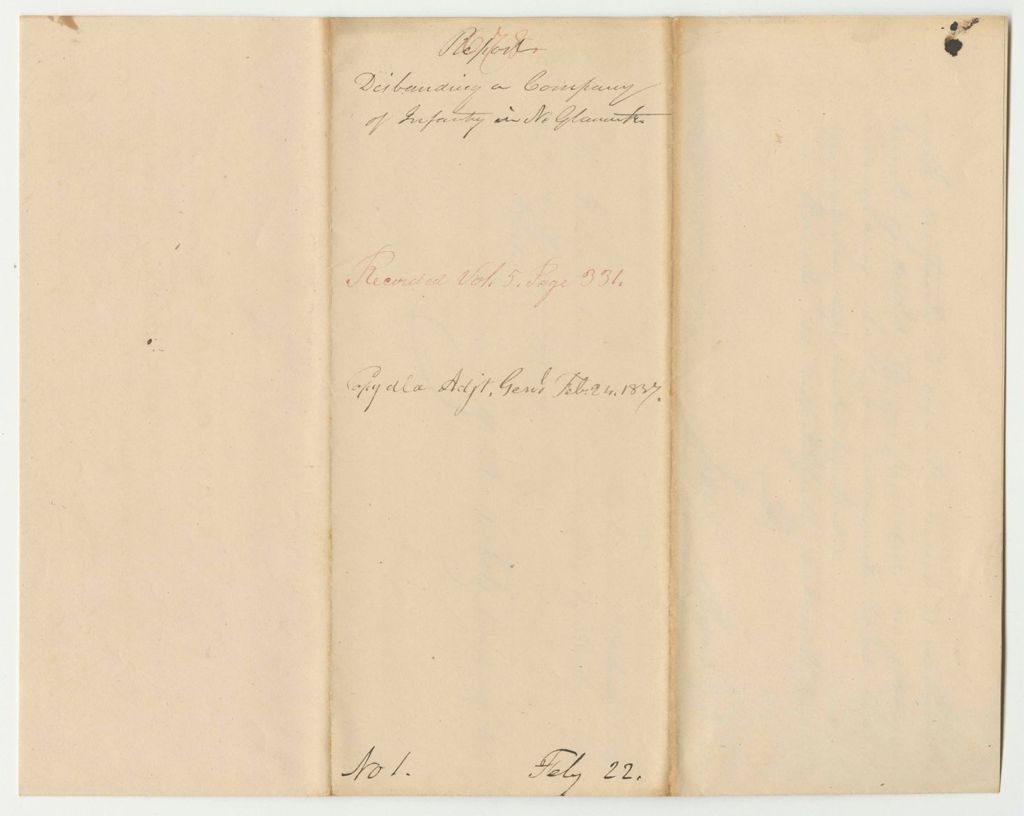 Report
Disbanding a Company
of Infantry in No Glanark
Recorded Vol. 5. Page 331.
Copyd la Adjt. Genl Feb. 24. 1837.
No 1. Feby 22.